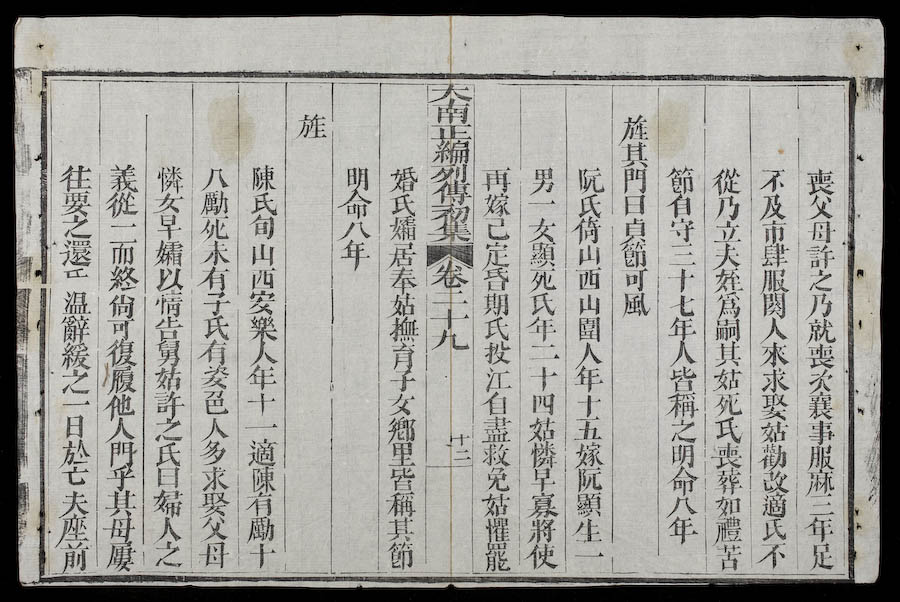 喪父母許之乃就喪次襄事服麻三年足
不及市肆服闋人來求娶姑勸改適氏不
從乃立夫姪爲嗣其姑死氏喪葬如禮苦
節自守三十七年人皆稱之明命八年
旌其門曰貞節可風
阮氏倚山西山圍人年十五嫁阮顯生一
男一女顯死氏年二十四姑憐早寡將使
再嫁已定昏期氏投江自盡救免姑懼罷
大南正編列傳初集 卷二十九 十二
婚氏孀居奉姑撫育子女鄉里皆稱其節
明命八年
旌
陳氏旬山西安樂人年十一適陳有勵十
八勵死未有子氏有姿色人多求娶父母
憐女早孀以情告舅姑許之氏曰婦人之
義從一而終尙可復履他人門乎其母屢
往要之還氏溫辭緩之一日於亡夫座前